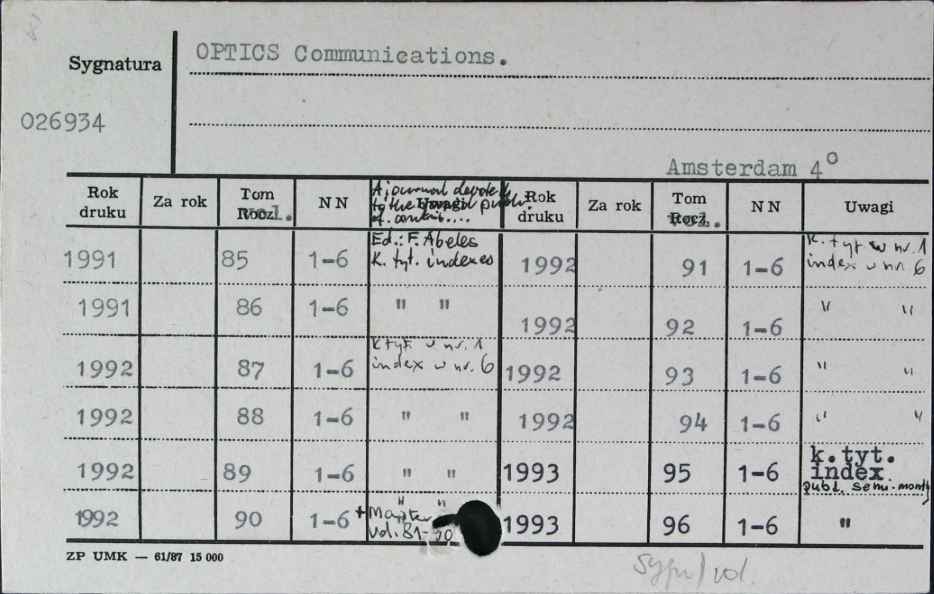 OPTICS Communications.
Sygnatura
026934
Amsterdam 4°
Rok druku Za rok Tom Rocz. NN A journal devoted to the Uwagi publ. of contrib.... Rok druku Za rok Tom Rocz. NN Uwagi
1991 85 1-6 Ed.: F. Abeles K. tyt. indexes 1992 91 1-6 K. tyt w nr. 1 index w nr. 6
1991 86 1-6 " " 1992 92 1-6 " "
1992 87 1-6 K tyt w nr. 1 index w nr. 6 1992 93 1-6 " "
1992 88 1-6 " " 1992 94 1-6 " "
1992 89 1-6 " " 1993 95 1-6 k.tyt. index publ. semi-month
1992 90 1-6 " " + Master vol. 81- 1993 96 1-6 "
ZP UMK — 61/87 15 000
Sygn/vol.